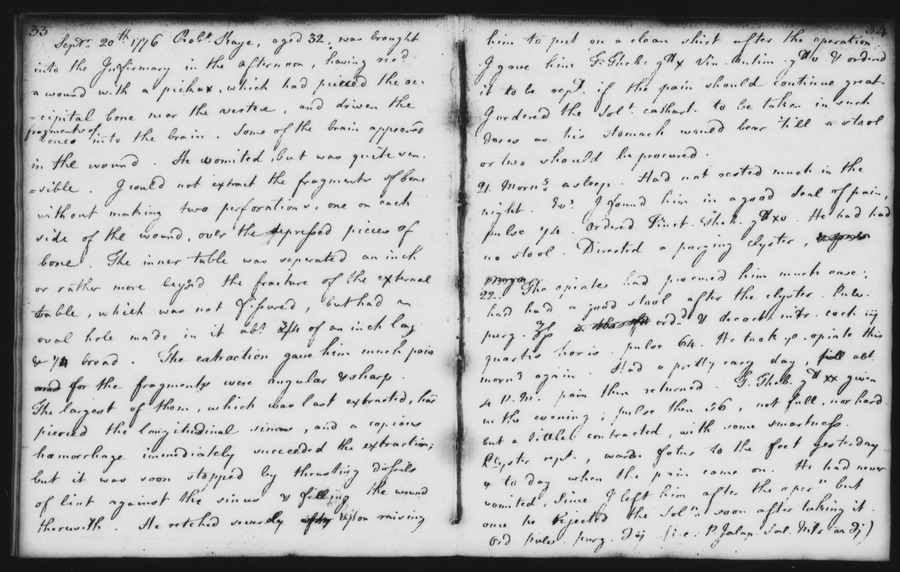 33
Septr. 20th 1776 Robt. Kaye, aged 32, was brought
into the Infirmary in the afternoon, having recd.
a wound with a pickax, which had pierced the oc-
=cipital bone near the vertex, and driven the
fragments of
bones into the brain. Some of the brain appeared
in the wound. He vomited, but was quite sen-
=sible. I could not extract the fragments of bone
without making two perforations, one on each
side of the wound, over the depressed pieces of
bone. The inner table was separated an inch
or rather more beyond the fracture of the external
table, which was not fissured, but had an
oval hole made in it abt. 3/4 of an inch long
& 1/4 broad. The extraction gave him much pain
and for the fragments were angular & sharp
The largest of them, which was last extracted, had
pierced the longitudinal sinus, and a copious
hæmorrhage immediately succeeded the extraction;
but it was soon stopped by thrusting dossils
of lint against the sinus & filling the wound
therewith. He retched severely upon raising
34
him to put on a clean shirt after the operation.
I gave him T. Theb. gtt x Vin. Antim. gtt v & ordered
it to be rept. if the pain should continue great.
I ordered the Solt. cathart. to be taken in such
doses as his stomach would bear 'till a stool
or two should be procured.
21. Morng. asleep. Had not rested much in the
night. Evg. I found him in a good deal of pain,
pulse 74. Ordered Tinct. Theb. gtt xv. He had had
no stool. Directed a purging clyster,
22. The opiates had procured him much ease;
had had a good stool after the clyster. Pulv.
purg. ordd. & decoct. nitr. each iij
quartis horis. pulse 64. He took ye. opiate this
morng. again. Had a pretty easy day till abt.
4 P.M. pain then returned. T. Theb. gtt xx given
in the evening; pulse then 56, not full, nor hard.
but a little contracted, with some smartness.
Clyster rept., warm fotus to the feet yesterday
& to day when the pain came on. He had never
vomited, since I left him after the opern. but
once he rejected the Soln. soon after taking it.
Ord pulv. purg. (i.e. P. Jalap. Sal.